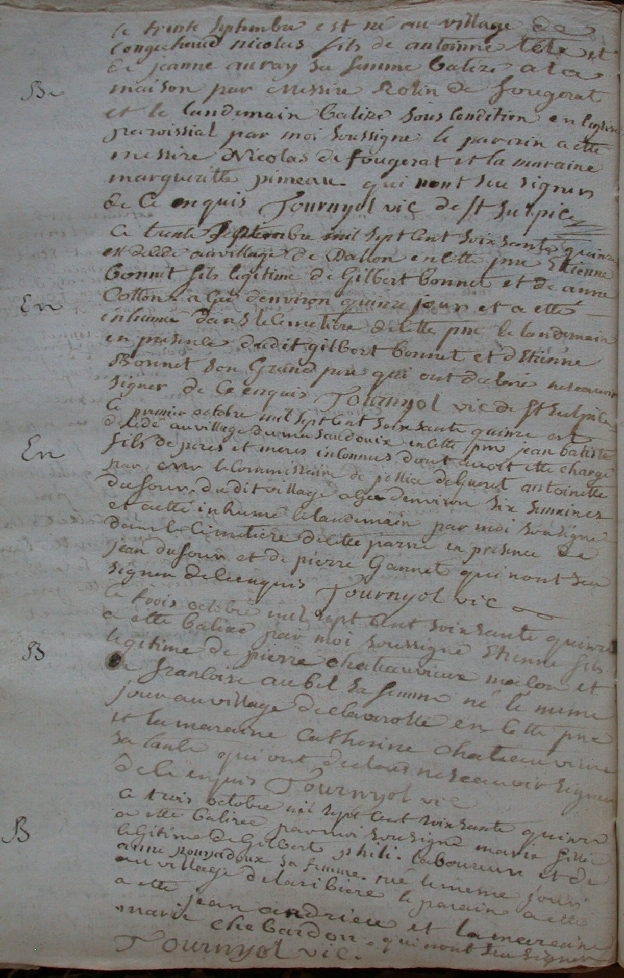 le trente septembre est né au village de
Congehoud nicolas fils de antoinne tete et
de jeanne auray sa femme batizé a la
B maison par messire Rolin de fougerat
et le landemain batizé sous condition en leglise
paroissial par moi soussigné le parain a ette
messire Nicolas de fougerat et la maraine
margueritte pineau. qui nont seu signer
de ce enquis Tournyol vic de st sulpice
Ce trente septembre mil sept cent soixsante quinze
est decede au village de vallon en cette pnre Etienne
bonnet fils legitime de Gilbert bonnet et de anne
En Cottone agé denviron quinze jours et a etté
inhumé dans le cemetiere de cette pnre le landemain
en presence dudit gilbert bonnet et dEtienne
Bonnet son Grand pere qui ont declaré ne scavoir
signer de ce enquis Tournyol vic de st sulpice
Ce premier octobre mil sept cent soixsante quinze est
decedé au village du en cette pnre jean batiste
En fils de peres et meres inconnus dont avoit etté chargé
par le Commissaire de pollice de Gueret antoinette
dufour dudit village agé denviron six semaines
et a etté inhumé le landemain par moi soussigné
dans le Cimetiere de cette parsse en presence de
jean dufour et de pierre Gannet qui nont seu
signer de ce enquis Tournyol vic
Ce trois octobre mil sept cent soixsante quinze
a ette batizé par moi soussigné Etienne fils
B legitime de pierre chateauvieux maçon et
de françoise aubel sa femme né le meme
jour au village de claverolle en cette pnre
et la maraine Catherine chateauvieux
sa tante qui ont declaré ne scavoir signer
de ce enquis Tournyol vic
Ce trois octobre mil sept cent soixsante quinze
B a ette batizée par moi soussigné marie fille
legitime de Gilbert phili. laboureur et de
anne pourjadoux sa femme. née le meme jour
au village de lariviere le parain a ette
a ette jean andrieu et la maraine
marie chebardon. qui nont seu signer
Tournyol vic.